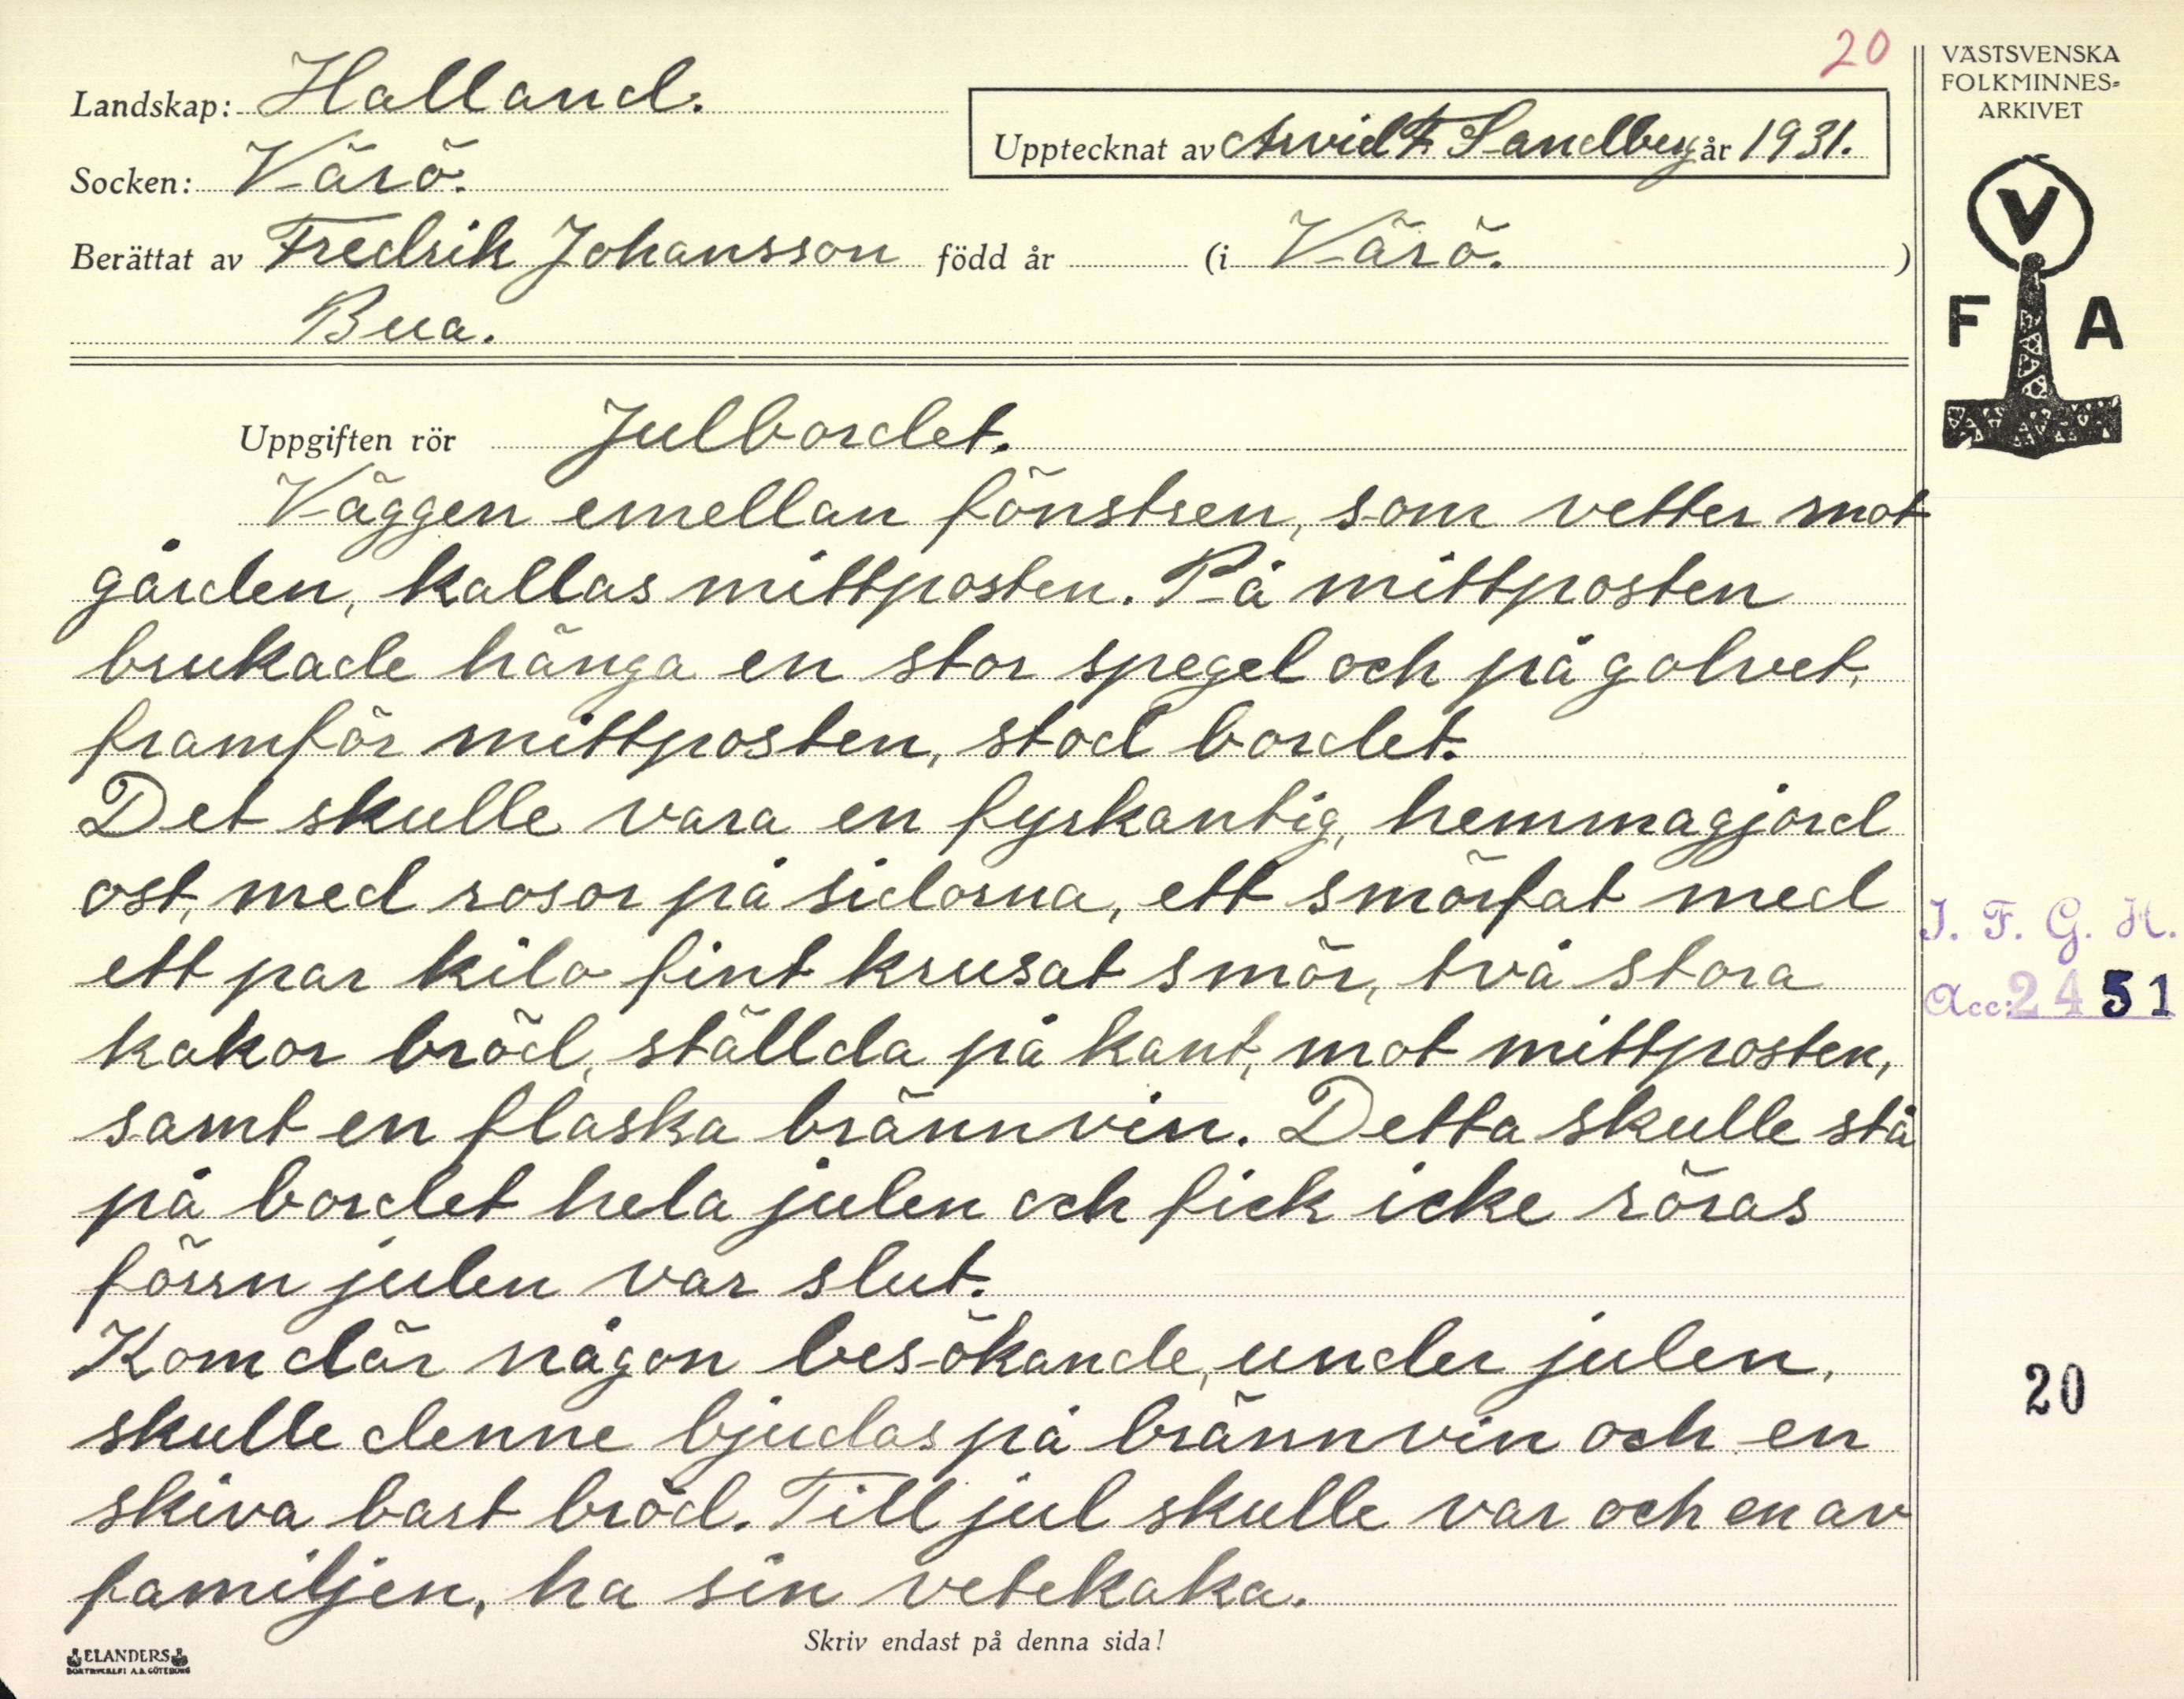 20
Landskap: Halland.
Socken: Värö.
Upptecknat av Arvid F. Sandberg år 1931.
Berättat av Fredrik Johansson född år (i Värö. )
Bua.
VÄSTSVENSKA
FOLKMINNES-
ARKIVET
V
F A
Uppgiften rör Julbordet.
Väggen emellan fönstren, som vetter mot
gården, kallas mittposten. På mittposten
brukade hänga en stor spegel och på golvet,
framför mittposten, stod bordet.
Det skulle vara en fyrkantig, hemmagjord
ost, med rosor på sidorna, ett smörfat med
ett par kilo fint krusat smör, två stora
kakor bröd, ställda på kant, mot mittposten,
samt en flaska brännvin. Detta skulle stå
på bordet hela julen och fick icke röras
förrn julen var slut.
Kom där någon besökande, under julen,
skulle denne bjudas på brännvin och en
skiva bast bröd. Till jul skulle var och en av
familjen, ha sin vetekaka.
I. F. G. H.
Acc: 2451
20
Skriv endast på denna sida!
ELANDERS
BOKTRYCKERI A.B. GÖTEBORG